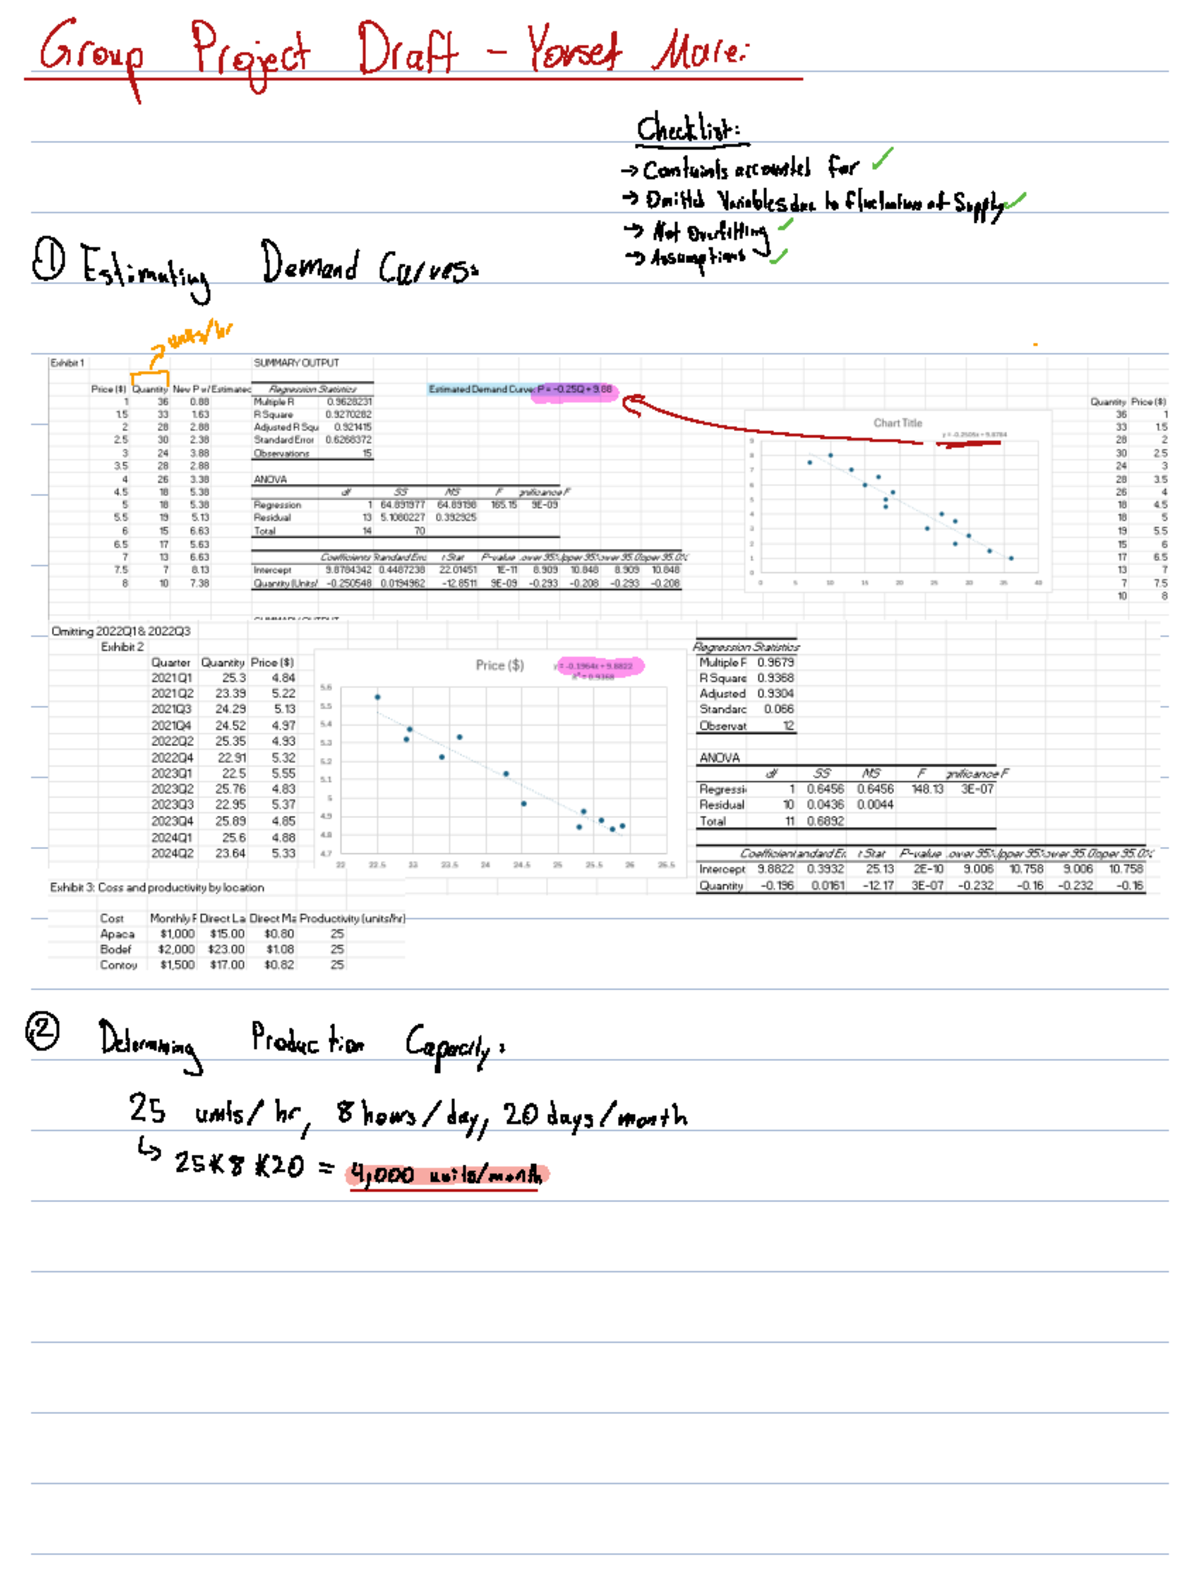 Group Project Draft - Yousef Marei
Checklist:
→ Constraints accounted for ✓
→ Omitted Variables due to fluctuations of Supply ✓
→ Not Overfitting ✓
→ Assumptions ✓
① Estimating Demand Curves:
units/hr
Exhibit 1
SUMMARY OUTPUT
Price ($) Quantity New P w/ Estimated Regression Statistics
Estimated Demand Curve: P = -0.25Q + 9.88
1 36 0.88 Multiple R 0.9628231
1.5 33 1.63 R Square 0.9270282
2 28 2.88 Adjusted R Squ 0.921415
2.5 30 2.38 Standard Error 0.6268372
3 24 3.88 Observations 15
3.5 28 2.88
4 26 3.38 ANOVA
4.5 18 5.38 df SS MS F gnificance F
5 18 5.38 Regression 1 64.891977 64.89198 165.15 9E-09
5.5 19 5.13 Residual 13 5.1080227 0.392925
6 15 6.63 Total 14 70
6.5 17 5.63
7 13 6.63 Coefficients Standard Erro t Stat P-value ower 95% Upper 95% ower 95.0 pper 95.0%
7.5 7 8.13 Intercept 9.8784342 0.4487238 22.01451 1E-11 8.909 10.848 8.909 10.848
8 10 7.38 Quantity (Units/ -0.250548 0.0194962 -12.8511 9E-09 -0.293 -0.208 -0.293 -0.208
Chart Title
y = -0.2505x + 9.8784
9
8
7
6
5
4
3
2
1
0
0 5 10 15 20 25 30 35 40
Quantity Price ($)
36 1
33 1.5
28 2
30 2.5
24 3
28 3.5
26 4
18 4.5
18 5
19 5.5
15 6
17 6.5
13 7
7 7.5
10 8
SUMMARY OUTPUT
Omitting 2022Q1 & 2022Q3
Exhibit 2
Quarter Quantity Price ($)
2021Q1 25.3 4.84
2021Q2 23.39 5.22
2021Q3 24.29 5.13
2021Q4 24.52 4.97
2022Q2 25.35 4.93
2022Q4 22.91 5.32
2023Q1 22.5 5.55
2023Q2 25.76 4.83
2023Q3 22.95 5.37
2023Q4 25.89 4.85
2024Q1 25.6 4.88
2024Q2 23.64 5.33
Price ($)
y = -0.1964x + 9.8822
R² = 0.9368
5.6
5.5
5.4
5.3
5.2
5.1
5
4.9
4.8
4.7
22 22.5 23 23.5 24 24.5 25 25.5 26 26.5
Regression Statistics
Multiple F 0.9679
R Square 0.9368
Adjusted 0.9304
Standarc 0.066
Observat 12
ANOVA
df SS MS F gnificance F
Regressi 1 0.6456 0.6456 148.13 3E-07
Residual 10 0.0436 0.0044
Total 11 0.6892
Coefficient andard Er t Stat P-value ower 95% pper 95% ower 95.0 pper 95.0%
Intercept 9.8822 0.3932 25.13 2E-10 9.006 10.758 9.006 10.758
Quantity -0.196 0.0161 -12.17 3E-07 -0.232 -0.16 -0.232 -0.16
Exhibit 3: Coss and productivity by location
Cost Monthly F Direct La Direct Ma Productivity (units/hr)
Apaca $1,000 $15.00 $0.80 25
Bodef $2,000 $23.00 $1.08 25
Contoy $1,500 $17.00 $0.82 25
② Determining Production Capacity:
25 units/hr, 8 hours/day, 20 days/month
↳ 25 x 8 x 20 = 4,000 units/month